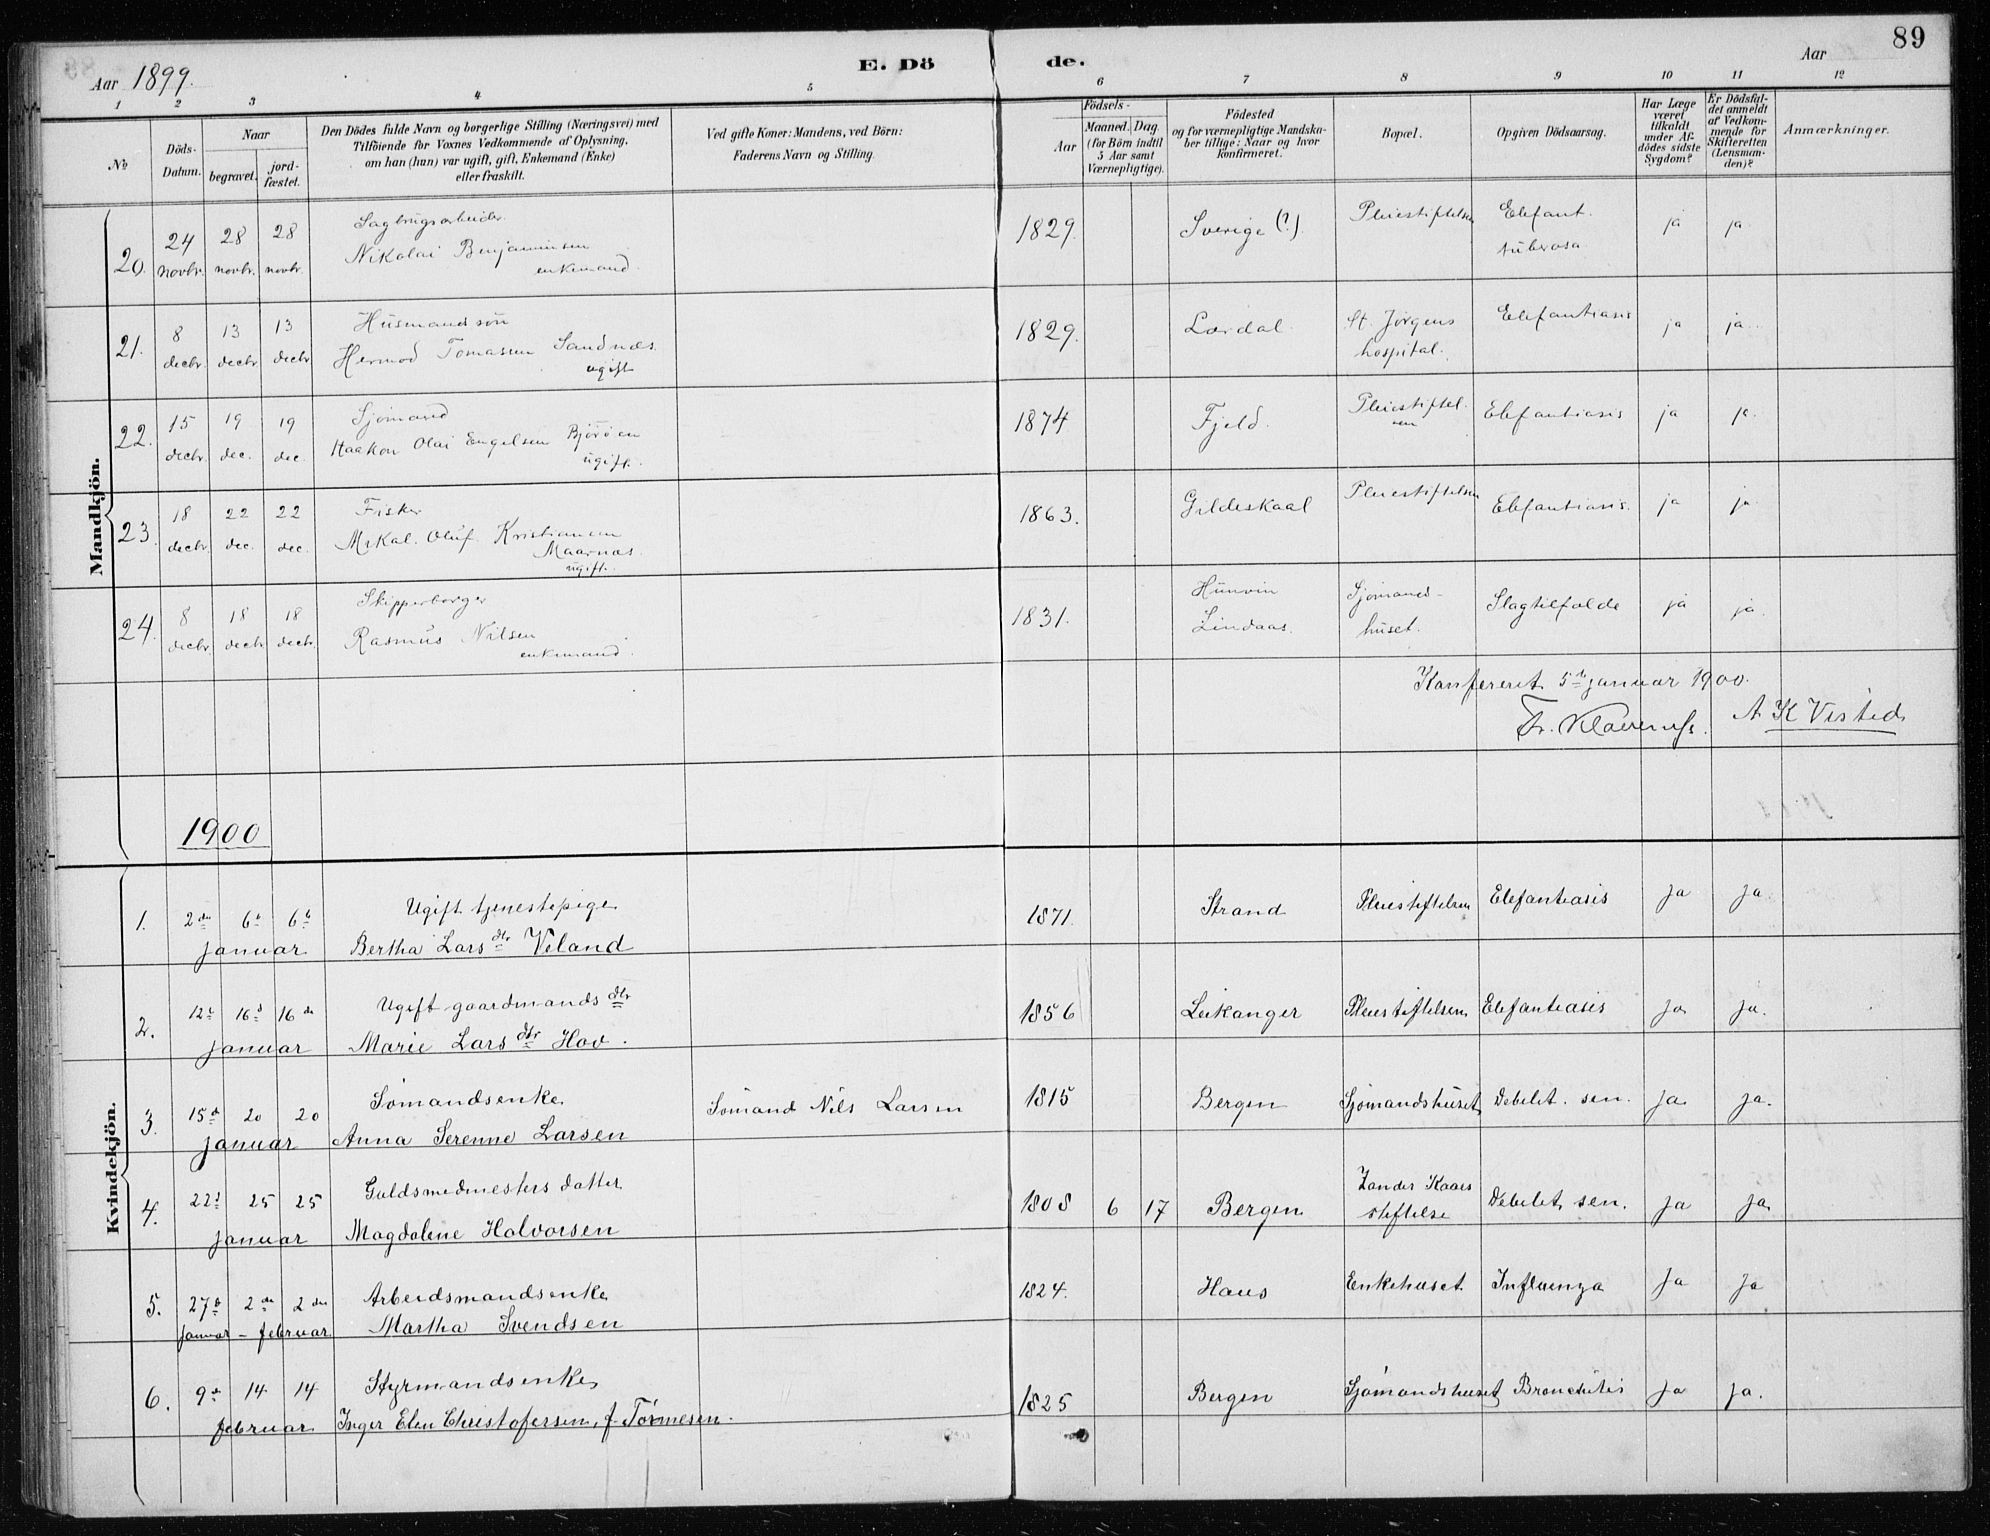 89
Aar 1899.
E. Dö de.
Aar
1 2 3 4 5 6 7 8 9 10 11 12
No
Döds-Datum.
Naar
begravet.
jord-fæstet.
Den Dödes fulde Navn og borgerlige Stilling (Næringsvei) med
Tilföiende for Voxnes Vedkommende af Oplysning,
om han (hun) var ugift, gift, Enkemand (Enke)
eller fraskilt.
Ved gifte Koner: Mandens, ved Börn:
Faderens Navn og Stilling.
Födsels-
Aar
Maaned. Dag.
(for Börn indtil
5 Aar samt
Værnepligtige).
Födested
og for værnepligtige Mandska-
ber tillige: Naar og hvor
konfirmeret.
Bopæl.
Opgiven Dödsaarsag.
Har Læge
været
tilkaldt
under Af-
dödes sidste
Sygdom?
Er Dödsfal-
det anmeldt
af Vedkom-
mende for
Skifteretten
(Lensman-
den)?
Anmærkninger.
Mandkjön.
20. 24 novbr. 28 novbr. 28 novbr. Sagbrugsarbeider
Nikolai Benjaminsen
enkemand.
1829. Sverige (?). Pleiestiftelsen Elefant.
tuberosa ja ja
21. 8 decbr. 13 decbr 13 decbr Husmandssön
Hermod Tomassen Sandnæs.
ugift
1829. Lærdal. St. Jørgens
hospital. Elefantiasis ja ja
22. 15 decbr. 19 dec. 19 dec. Sjömand
Haakon Olai Engelsen Björöen
ugift.
1874 Fjeld. Pleiestiftel-
sen Elefantiasis ja ja
23. 18 decbr. 22 dec. 22 dec. Fisker
Mikal. Oluf. Kristiansen
Maarnæs.
ugift.
1863. Gildeskaal Pleiestiftelsen Elefantiasis. ja ja
24. 8 decbr. 18 decbr 18 decbr. Skipperborger
Rasmus Nilsen
enkemand.
1831. Hunvin
Lindaas. Sjömands-
huset. Slagtilfælde ja ja.
Konfereret 5te januar 1900.
A K Visted
1900
Kvindekjön.
1. 2den 6te 6te januar Ugift tjenestepige
Bertha Larsdtr Veland
1871. Strand Pleiestiftelsen Elefantiasis ja ja.
2. 12te 16de 16de januar Ugift gaardmandsdtr
Marie Larsdtr Hov.
1856 Leikanger Pleiestiftelsen Elefantiasis ja ja.
3. 15de 20 20 januar Sömandsenke
Anna Serenne Larsen
Sömand Nils Larsen
1815 Bergen Sjömandshuset Debelit. sen. ja ja.
4. 22de 25 25 januar Guldsmedmesters datter
Magdalene Halvorsen
1808 6 17 Bergen Zander Kaaes
stiftelse Debelit. sen. ja ja
5. 27de januar 2den 2den – februar Arbeidsmandsenke
Martha Svendsen
1824. Haus Enkehuset Influenza ja ja
6. 9de 14 14 februar Styrmandsenke
Inger Elen Christofersen, f. Törmesen.
1825 Bergen Sjömandshuset Bronchitis ja ja.